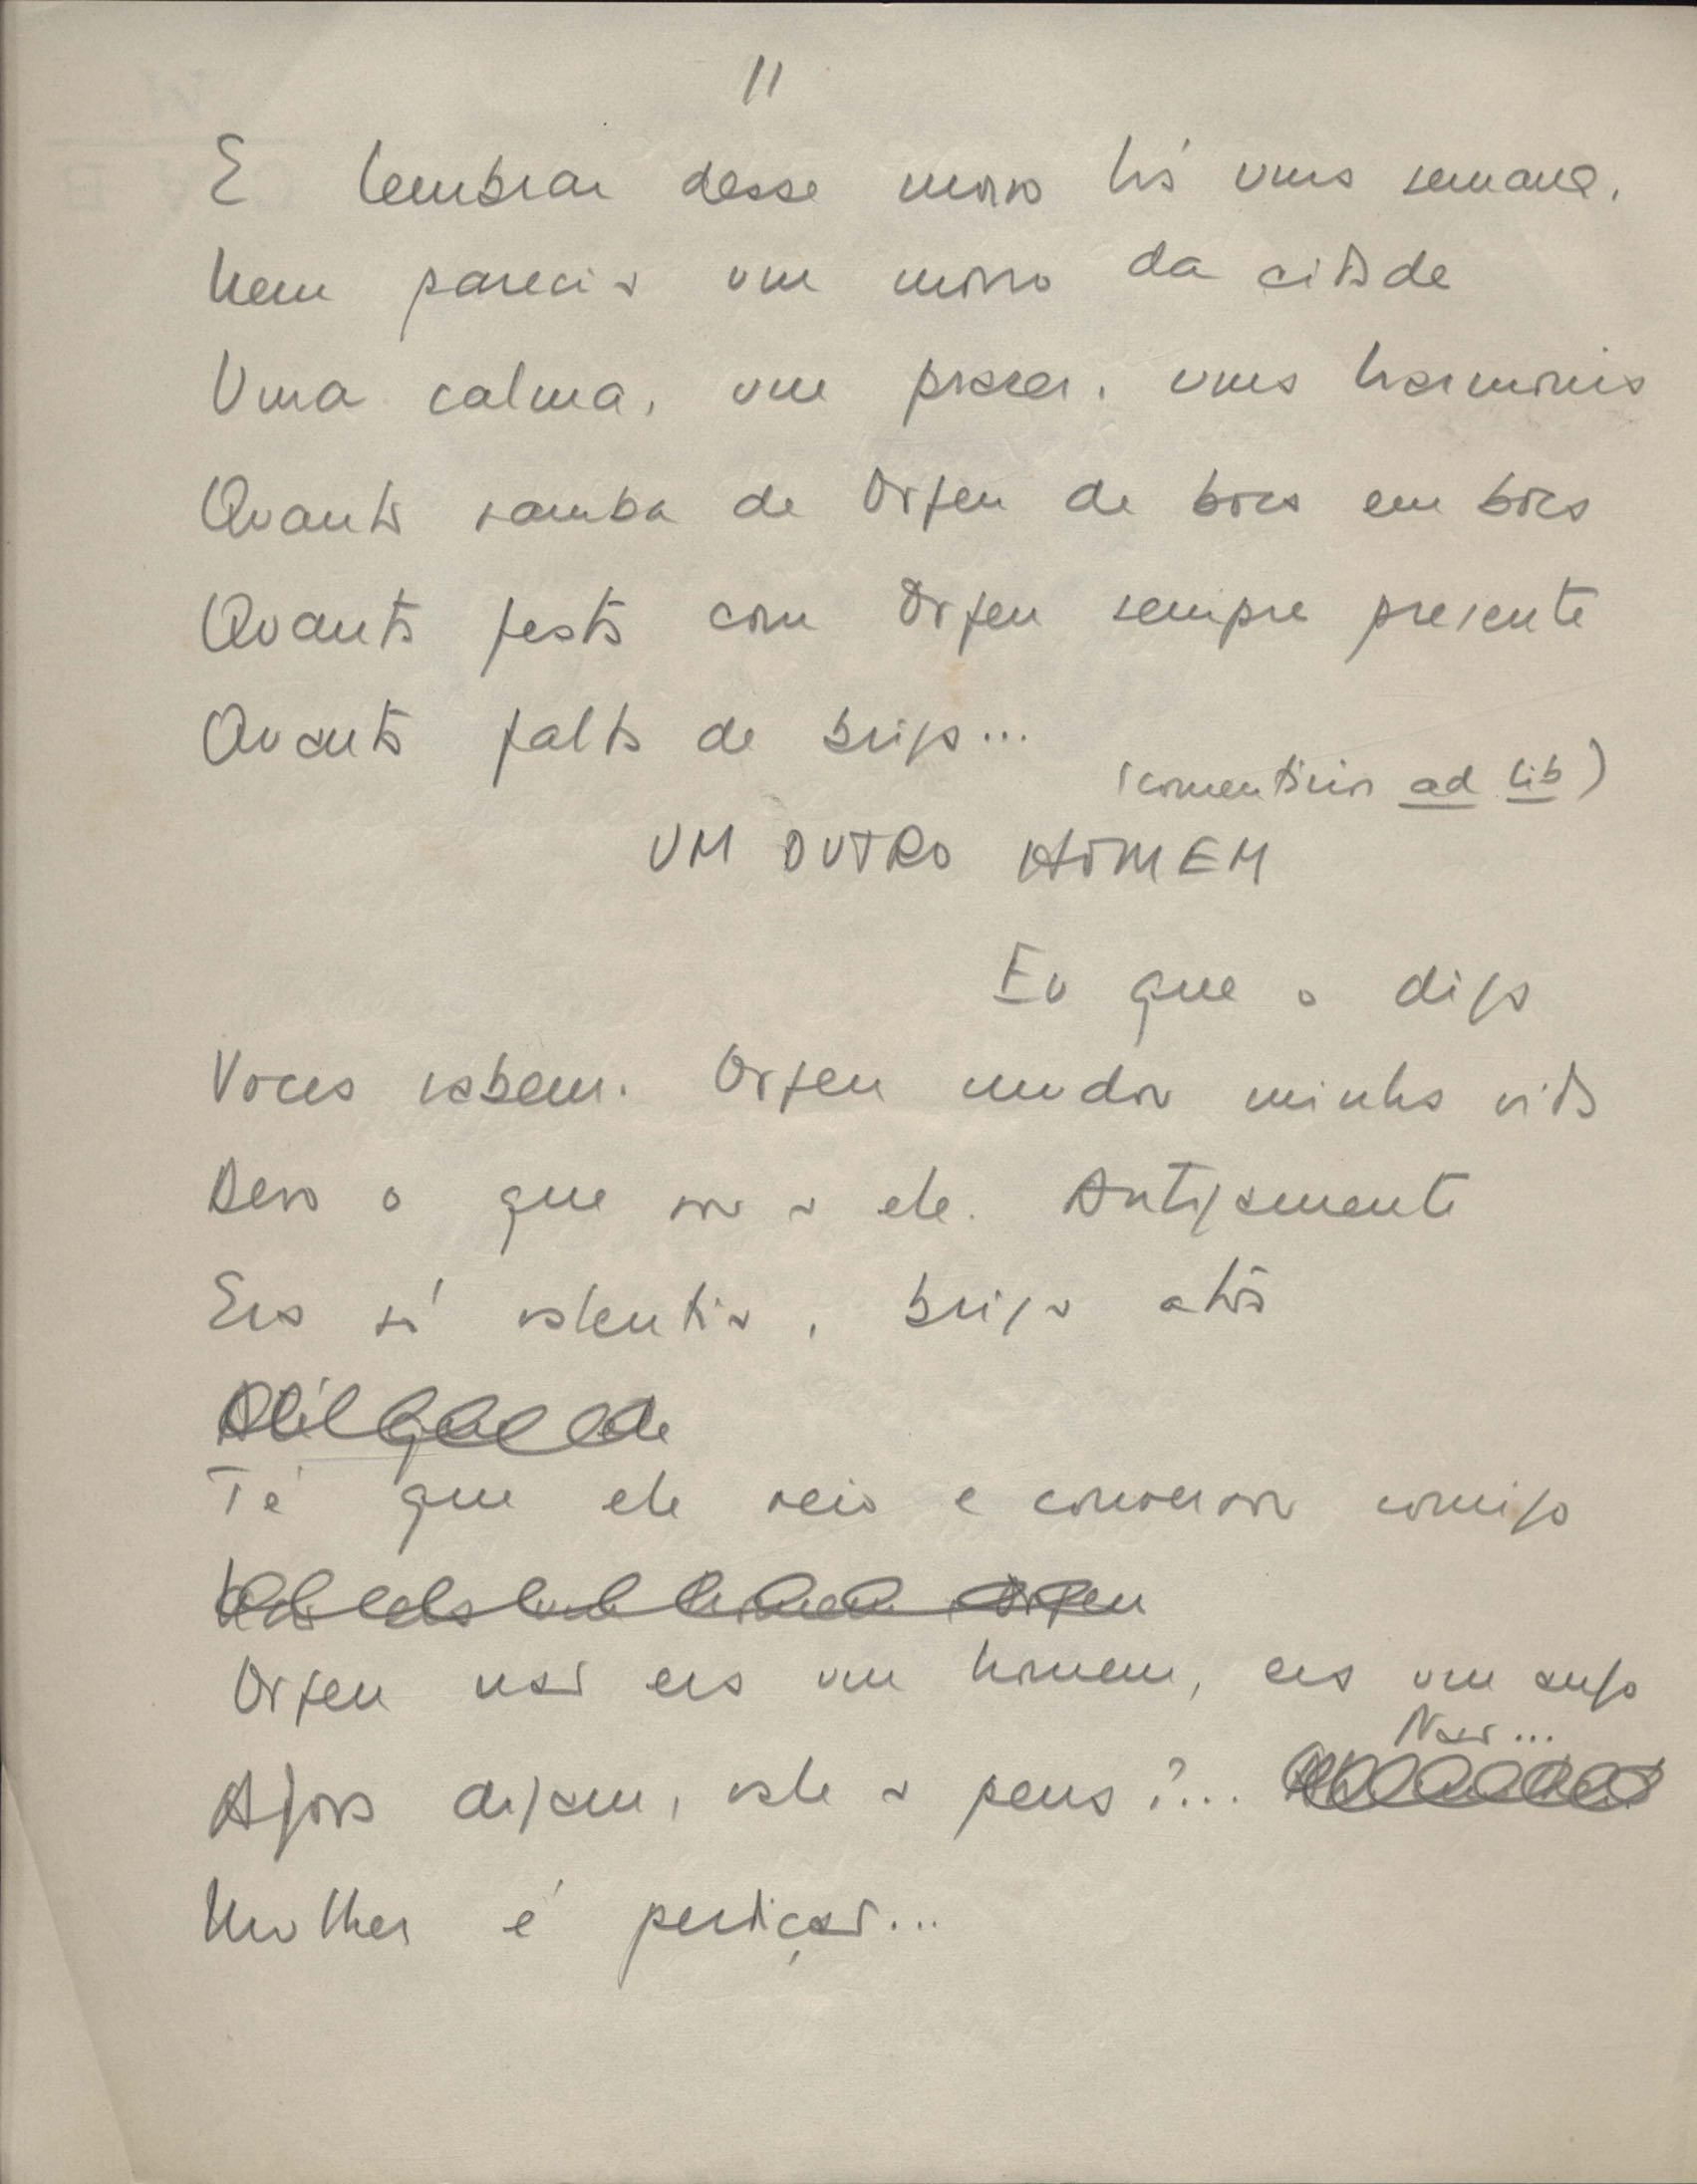 11
E lembrar desse morro há uma semana.
Nem parecia um morro da cidade
Uma calma, um prazer, uma harmonia
Quanto samba de Orfeu de boca em boca
Quanta festa com Orfeu sempre presente
Quanta falta de briga...
(comentários ad lib)
UM OUTRO HOMEM
Eu que o diga
Voces sabem. Orfeu mudou minha vida
Devo o que sou a ele. Antigamente
Era só valentia, briga atôa
Té que ele veio e conversou comigo
Orfeu
Orfeu não era um homem, era um anjo
Não...
Agora digam, vale a pena?...
Mulher é perdição...